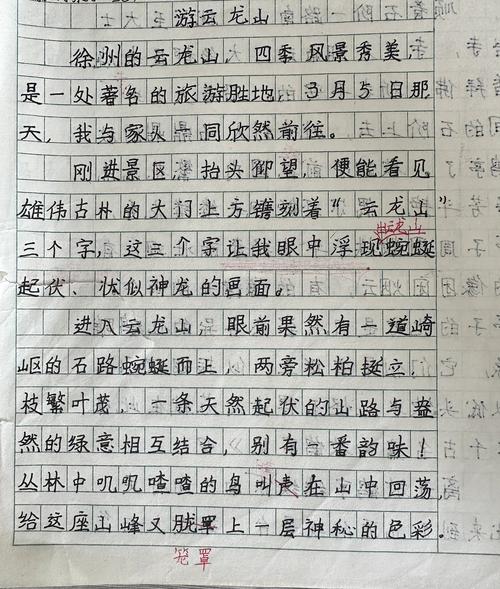 游云龙山
徐州的云龙山，四季风景秀美，
是一处著名的旅游胜地。3月5日那
天，我与家人一同欣然前往。
刚进景区，抬头仰望，便能看见
雄伟古朴的大门上方镌刻着"云龙山"
三个字，这三个字让我眼中浮现蜿蜒
出龙山
起伏、状似神龙的画面。
进入云龙山，眼前果然有一道崎
岖的石路蜿蜒而上，两旁松柏挺立，
枝繁叶茂，一条天然起伏的山路与盎
然的绿意相互结合，别有一番韵味！
丛林中叽叽喳喳的鸟叫声在山中回荡，
给这座山峰又胧罩上一层神秘的色彩。
笼罩